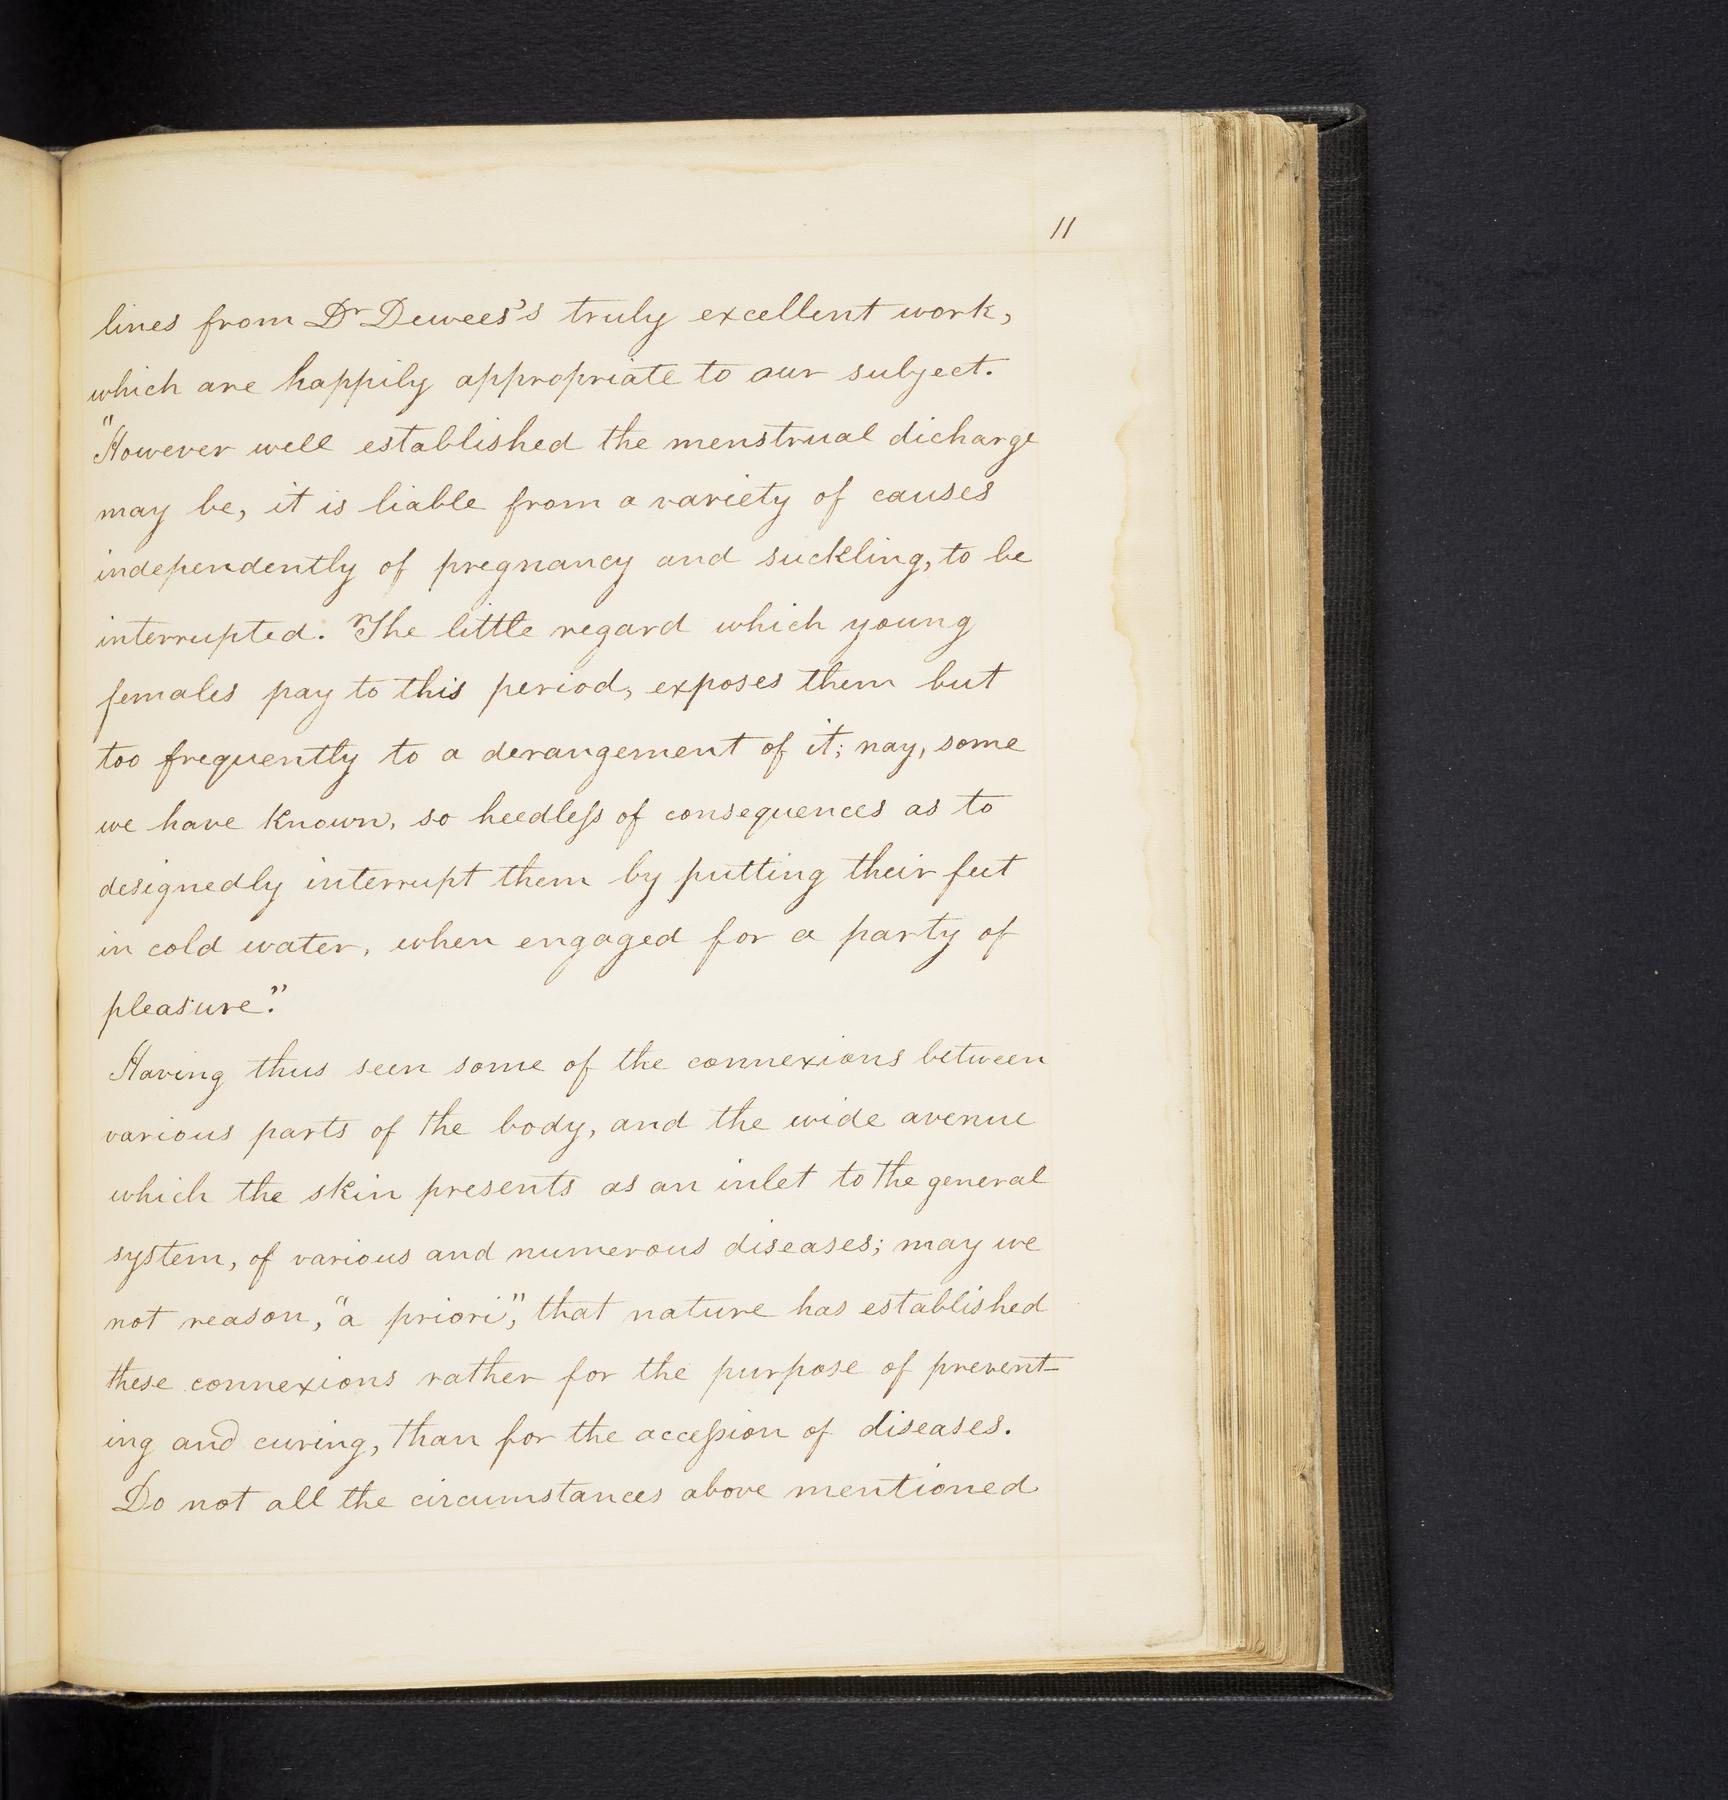 11
lines from Dr Dewees's truly excellent work,
which are happily appropriate to our subject.
"However well established the menstrual dicharge
may be, it is liable from a variety of causes
independently of pregnancy and suckling, to be
interrupted. The little regard which young
females pay to this period, exposes them but
too frequently to a derangement of it; nay, some
we have known, so heedleſs of consequences as to
designedly interrupt them by putting their feet
in cold water, when engaged for a party of
pleasure."
Having thus seen some of the connexions between
various parts of the body, and the wide avenue
which the skin presents as an inlet to the general
system, of various and numerous diseases; may we
not reason, "a priori", that nature has established
these connexions rather for the purpose of prevent-
ing and curing, than for the acceſsion of diseases.
Do not all the circumstances above mentioned